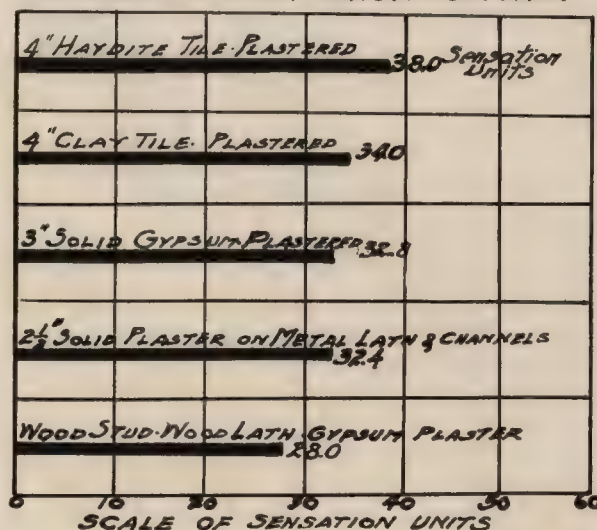 4" HAYDITE TILE. PLASTERED
38.0 Sensation
Units
4" CLAY TILE. PLASTERED
34.0
3" SOLID GYPSUM. PLASTERED
32.8
2½" SOLID PLASTER ON METAL LATH & CHANNELS
32.4
WOOD STUD. WOOD LATH. GYPSUM PLASTER
28.0
0 10 20 30 40 50 60
SCALE OF SENSATION UNITS